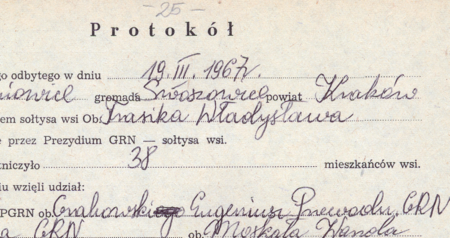 - 25 -
Protokół
go odbytego w dniu 19.III.1967r.
niowice gromada Swoszowice powiat Kraków
em sołtysa wsi Ob. Trasika Władysława
e przez Prezydium GRN — sołtysa wsi.
tniczyło 38 mieszkańców wsi.
iu wzięli udział:
PGRN ob. Grabowski Eugeniusz Przewodn. GRN
a GRN ob. Moskała Wanda